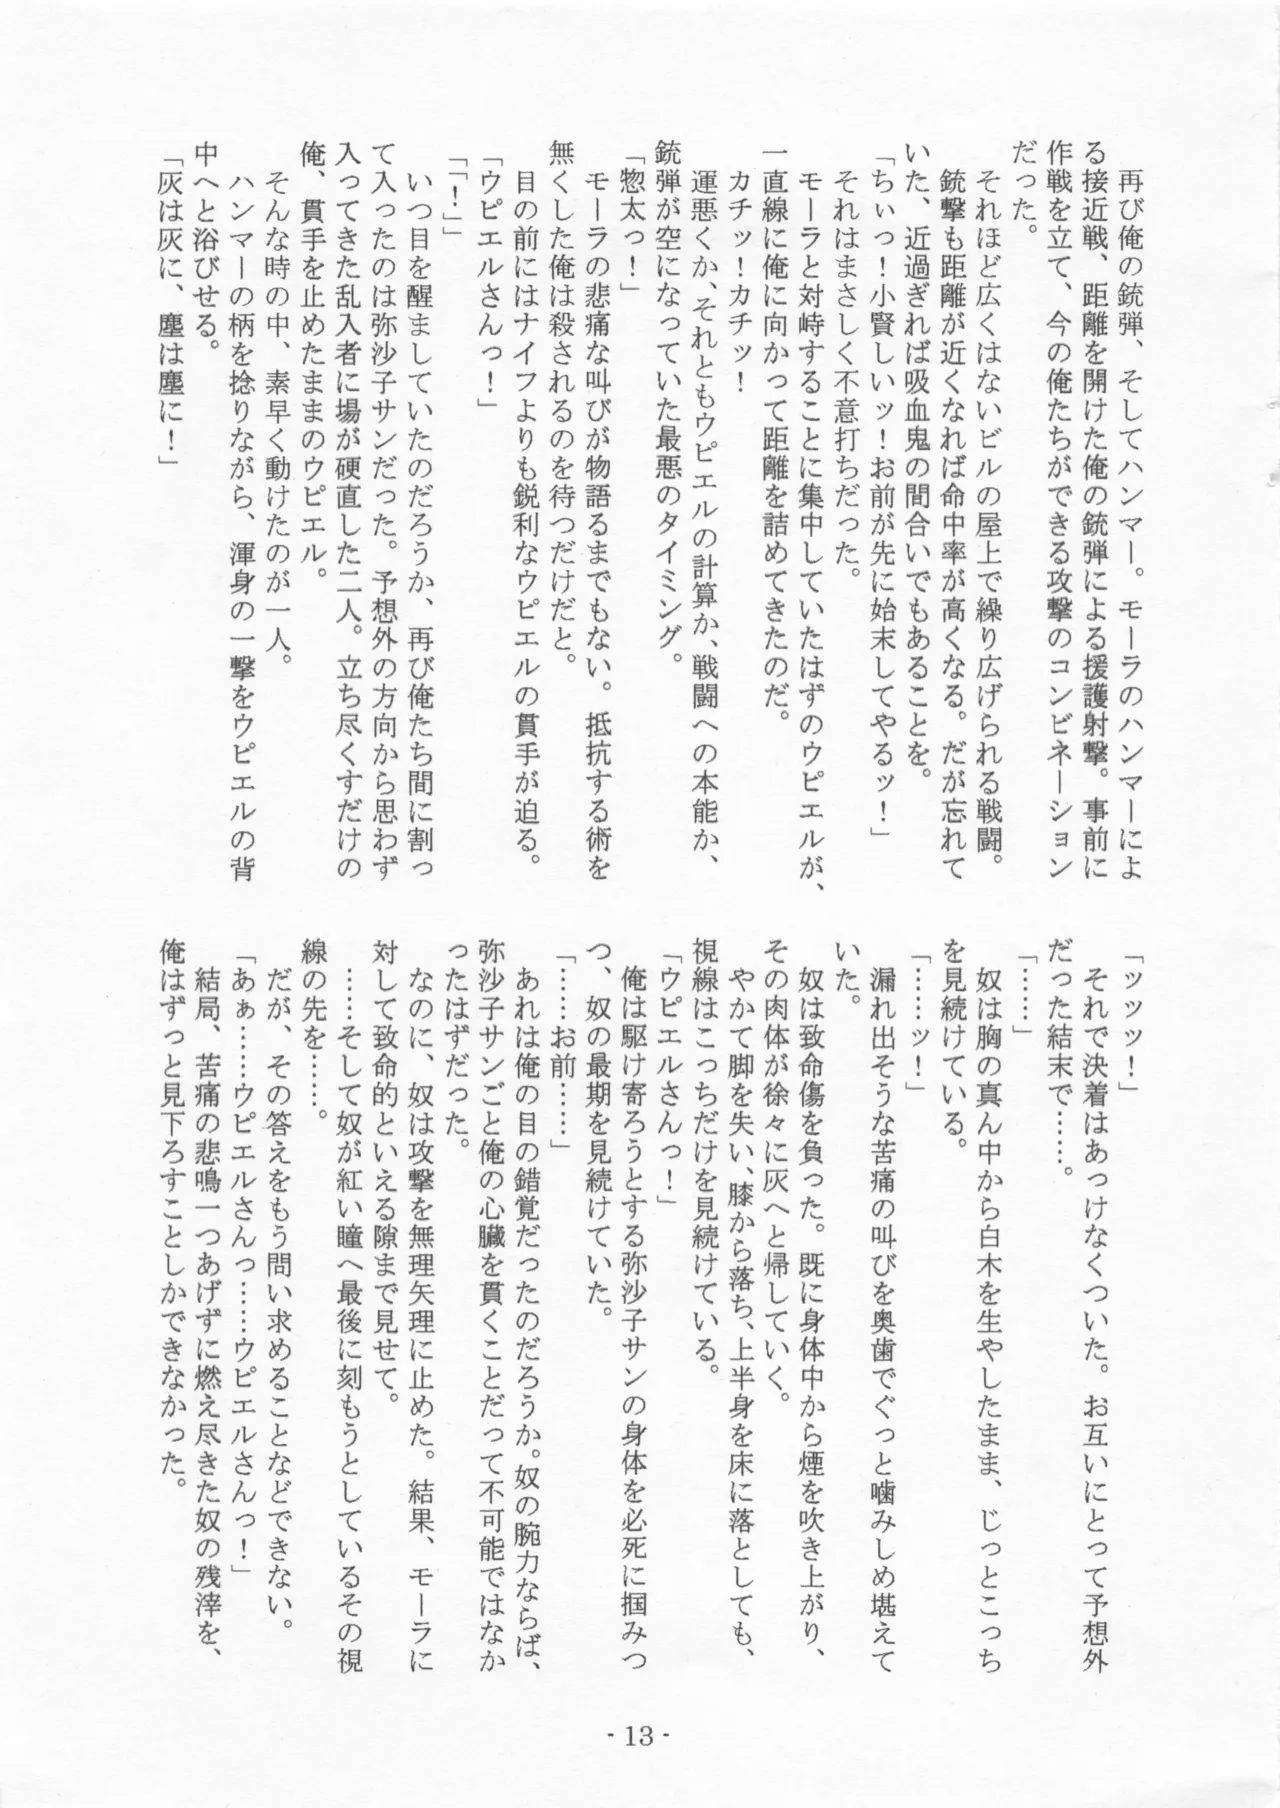 再び俺の銃弾、そしてハンマー。モーラのハンマーによ
る接近戦、距離を開けた俺の銃弾による援護射撃。事前に
作戦を立て、今の俺たちができる攻撃のコンビネーション
だった。
それほど広くはないビルの屋上で繰り広げられる戦闘。
銃撃も距離が近くなれば命中率が高くなる。だが忘れて
いた、近過ぎれば吸血鬼の間合いでもあることを。
「ちぃっ！小賢しいッ！お前が先に始末してやるッ！」
それはまさしく不意打ちだった。
モーラと対峙することに集中していたはずのウピエルが、
一直線に俺に向かって距離を詰めてきたのだ。
カチッ！カチッ！
運悪くか、それともウピエルの計算か、戦闘への本能か、
銃弾が空になっていた最悪のタイミング。
「惣太っ！」
モーラの悲痛な叫びが物語るまでもない。抵抗する術を
無くした俺は殺されるのを待つだけだと。
目の前にはナイフよりも鋭利なウピエルの貫手が迫る。
「ウピエルさんっ！」
「「！」」
いつ目を醒ましていたのだろうか、再び俺たち間に割っ
て入ったのは弥沙子サンだった。予想外の方向から思わず
入ってきた乱入者に場が硬直した二人。立ち尽くすだけの
俺、貫手を止めたままのウピエル。
そんな時の中、素早く動けたのが一人。
ハンマーの柄を捻りながら、渾身の一撃をウピエルの背
中へと浴びせる。
「灰は灰に、塵は塵に！」
「ッッッ！」
それで決着はあっけなくついた。お互いにとって予想外
だった結末で……。
「……」
奴は胸の真ん中から白木を生やしたまま、じっとこっち
を見続けている。
「……ッ！」
漏れ出そうな苦痛の叫びを奥歯でぐっと噛みしめ堪えて
いた。
奴は致命傷を負った。既に身体中から煙を吹き上がり、
その肉体が徐々に灰へと帰していく。
やかて脚を失い、膝から落ち、上半身を床に落としても、
視線はこっちだけを見続けている。
「ウピエルさんっ！」
俺は駆け寄ろうとする弥沙子サンの身体を必死に掴みつ
つ、奴の最期を見続けていた。
「……お前……」
あれは俺の目の錯覚だったのだろうか。奴の腕力ならば、
弥沙子サンごと俺の心臓を貫くことだって不可能ではなか
ったはずだった。
なのに、奴は攻撃を無理矢理に止めた。結果、モーラに
対して致命的といえる隙まで見せて。
……そして奴が紅い瞳へ最後に刻もうとしているその視
線の先を……。
だが、その答えをもう問い求めることなどできない。
「あぁ……ウピエルさんっ……ウピエルさんっ！」
結局、苦痛の悲鳴一つあげずに燃え尽きた奴の残滓を、
俺はずっと見下ろすことしかできなかった。
- 13 -